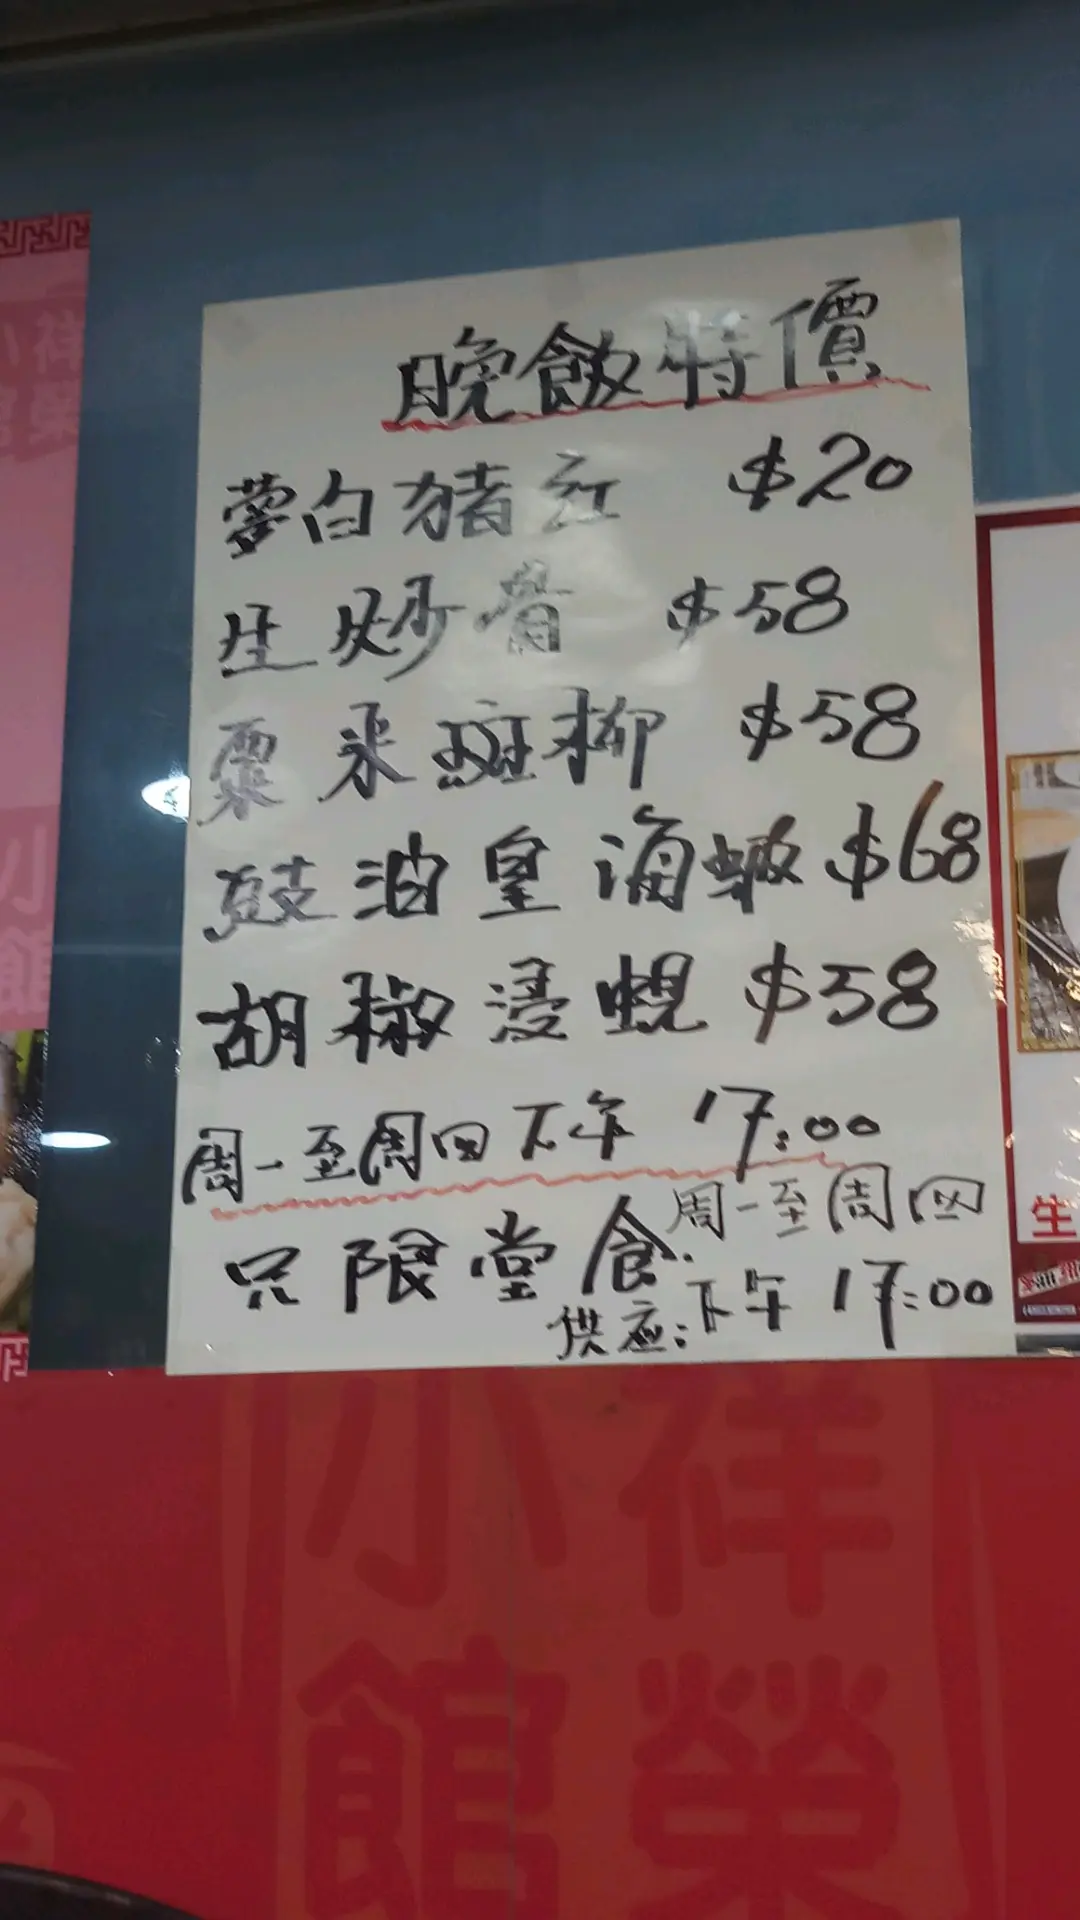 晚飯特價
蔔白猪红 $20
生炒骨 $58
粟米斑柳 $58
鼓油皇海蝦 $68
胡椒浸蜆 $58
周一至周四下午 17:00
只限堂食
周一至周四
供应:下午 17:00
小祥
館榮
生